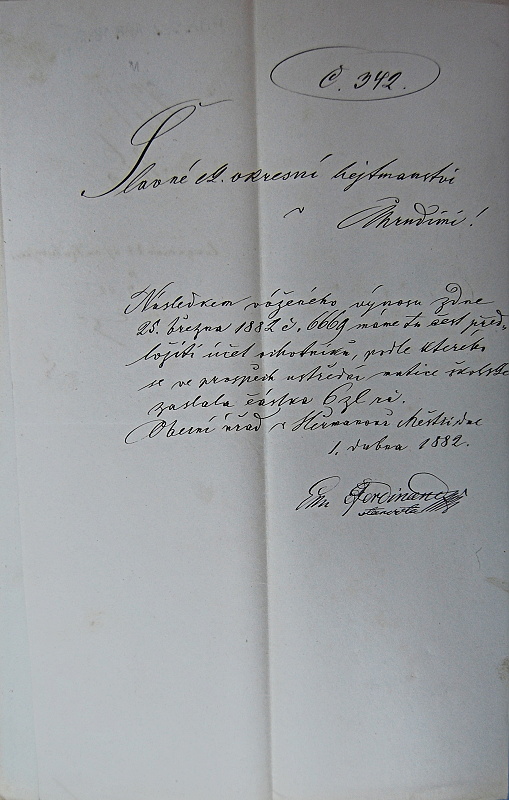 Č. 342.
Slavné ck. okresní hejtmanství
v
Chrudimi!
Následkem váženého výnosu zdne
25. března 1882 č. 6669 máme tu čest před-
ložiti účet ochotníků, podle kterého
se ve prospěch ústřední matice školské
zaslala částka 6 zl rč.
Obecní úřad v Heřmanově Městci dne
1. dubna 1882.
Em Ferdinand
starosta